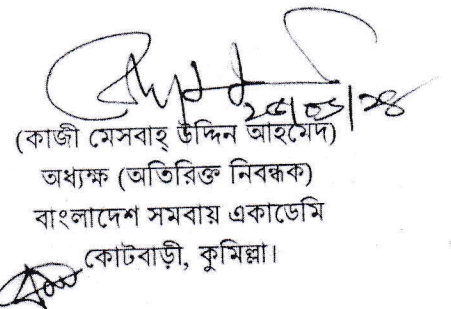 (কাজী মেসবাহ্ উদ্দিন আহমেদ)
অধ্যক্ষ (অতিরিক্ত নিবন্ধক)
বাংলাদেশ সমবায় একাডেমি
কোটবাড়ী, কুমিল্লা।